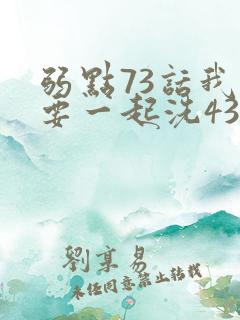 弱點73話我
要一起洗43
劉享易
未经同意禁止转载